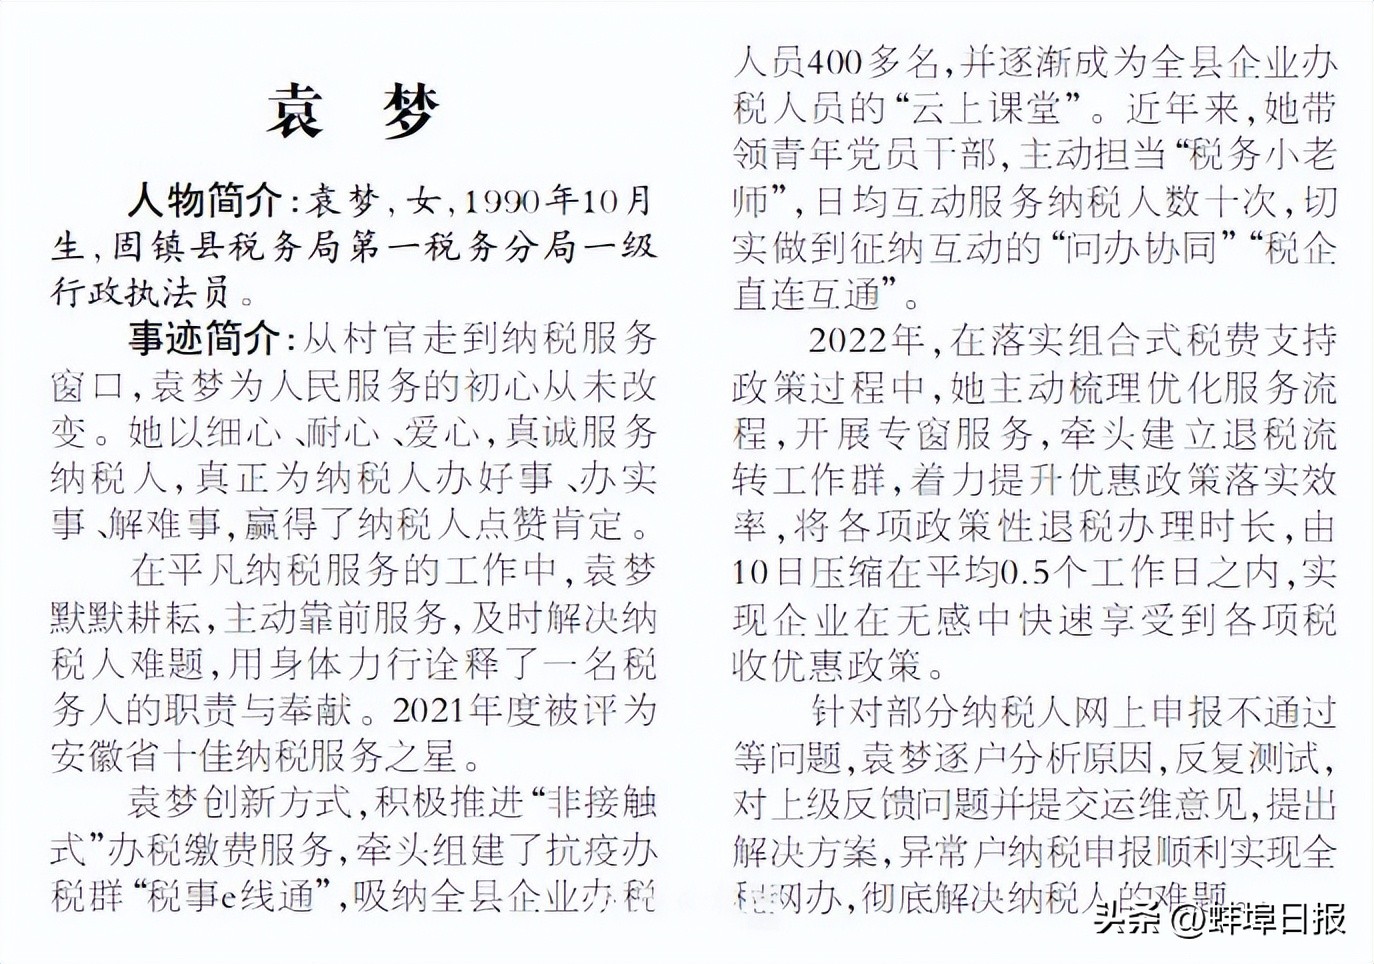 袁 梦
人物简介:袁梦,女,1990年10月
生,固镇县税务局第一税务分局一级
行政执法员。
事迹简介:从村官走到纳税服务
窗口,袁梦为人民服务的初心从未改
变。她以细心、耐心、爱心,真诚服务
纳税人,真正为纳税人办好事、办实
事、解难事,赢得了纳税人点赞肯定。
在平凡纳税服务的工作中,袁梦
默默耕耘,主动靠前服务,及时解决纳
税人难题,用身体力行诠释了一名税
务人的职责与奉献。2021年度被评为
安徽省十佳纳税服务之星。
袁梦创新方式,积极推进“非接触
式”办税缴费服务,牵头组建了抗疫办
税群“税事e线通”,吸纳全县企业办税
人员400多名,并逐渐成为全县企业办
税人员的“云上课堂”。近年来,她带
领青年党员干部,主动担当“税务小老
师”,日均互动服务纳税人数十次,切
实做到征纳互动的“问办协同”“税企
直连互通”。
2022年,在落实组合式税费支持
政策过程中,她主动梳理优化服务流
程,开展专窗服务,牵头建立退税流
转工作群,着力提升优惠政策落实效
率,将各项政策性退税办理时长,由
10日压缩在平均0.5个工作日之内,实
现企业在无感中快速享受到各项税
收优惠政策。
针对部分纳税人网上申报不通过
等问题,袁梦逐户分析原因,反复测试,
对上级反馈问题并提交运维意见,提出
解决方案,异常户纳税申报顺利实现全
程网办,彻底解决纳税人的难题。
头条 @蚌埠日报